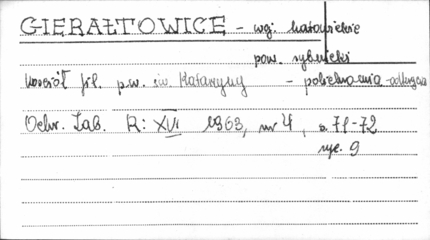 GIERAŁTOWICE - woj. katowickie
pow. rybnicki
Kościół fil. p.w. św. Katarzyny - polichromia
Ochr. Zab. R: XVI 1963, nr 4, s. 71-72
ryc. 9